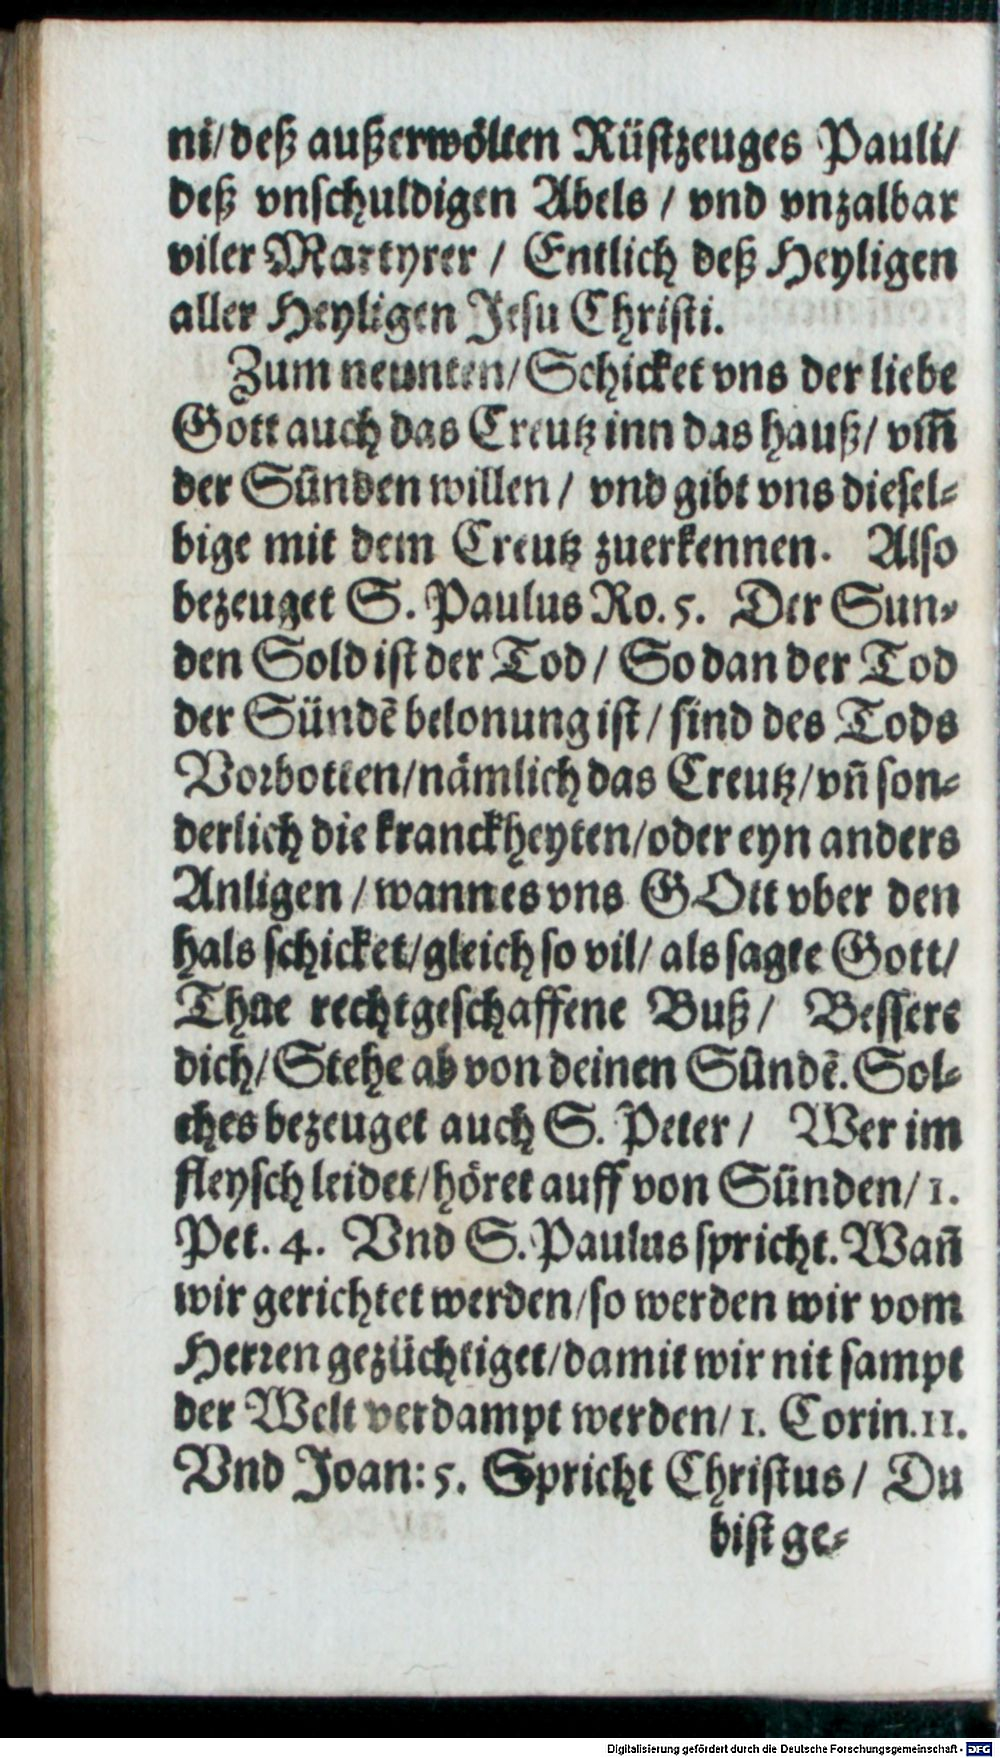 ni/deß außerwölten Rüstzeuges Pauli/
deß vnschuldigen Abels / vnd vnzalbar
viler Martyrer / Entlich deß Heyligen
aller Heyligen Jesu Christi.
Zum neunten/Schicket vns der liebe
Gott auch das Creutz inn das hauß/ vm̃
der Sünden willen / vnd gibt vns diesel-
bige mit dem Creutz zuerkennen. Also
bezeuget S. Paulus Ro. 5. Der Sun-
den Sold ist der Tod / So dan der Tod
der Sündẽ belonung ist / sind des Tods
Vorbotten/nämlich das Creutz/vñ son-
derlich die kranckheyten/oder eyn anders
Anligen / wann es vns GOtt vber den
hals schicket/gleich so vil/ als sagte Gott/
Thue rechtgeschaffene Buß / Bessere
dich/Stehe ab von deinen Sündẽ. Sol-
ches bezeuget auch S. Peter / Wer im
fleysch leidet/höret auff von Sünden/ 1.
Pet. 4. Vnd S. Paulus spricht. Wañ
wir gerichtet werden/so werden wir vom
Herren gezüchtiget/damit wir nit sampt
der Welt verdampt werden/ 1. Corin.11.
Vnd Joan: 5. Spricht Christus / Du
bist ge-
Digitalisierung gefördert durch die Deutsche Forschungsgemeinschaft - DFG